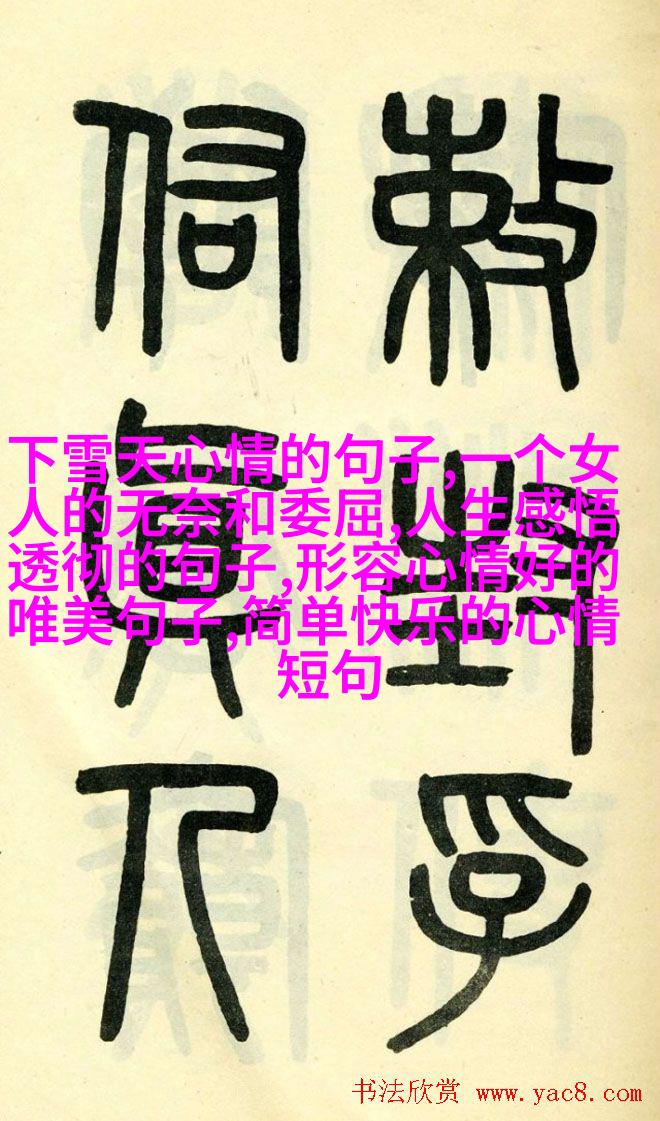 敕封孚
佑眞人
下雪天心情的句子,一个女
人的无奈和委屈,人生感悟
透彻的句子,形容心情好的
唯美句子,简单快乐的心情
短句
书法欣赏 www.yac8.com